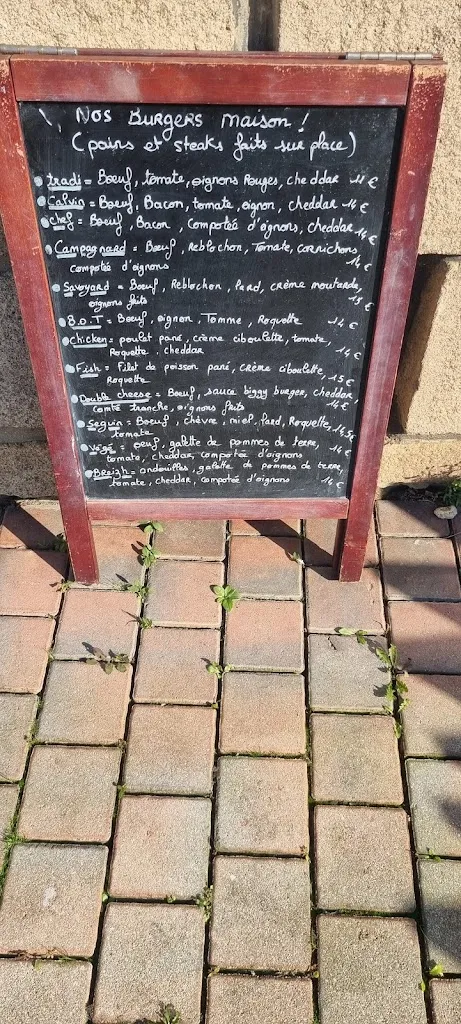 Nos Burgers maison !
(pains et steaks faits sur place)
tradi = Bœuf, tomate, oignons Rouges, cheddar 11 €
Calvin = Bœuf, Bacon, tomate, oignon, cheddar 14 €
Chef = Bœuf, Bacon, Compotée d'oignons, cheddar 14 €
Campagnard = Bœuf, Reblochon, Tomate, cornichons
Compotée d'oignons 14 €
Savoyard = Bœuf, Reblochon, Lard, crème moutarde,
oignons frits 15 €
B.O.T = Bœuf, oignon, Tomme, Roquette 14 €
Chicken = poulet pané, crème ciboulette, tomate,
Roquette, cheddar 14 €
Fish = Filet de poisson pané, crème ciboulette,
Roquette 15 €
Double cheese = Bœuf, sauce biggy burger, cheddar,
comté tranche, oignons frits 14 €
Seguin = Bœuf, chèvre, miel, Lard, Roquette,
tomate 14,5 €
Végé = oeuf, galette de pommes de terre,
tomate, cheddar, compotée d'oignons 14 €
Breizh = andouilles, galette de pommes de terre,
tomate, cheddar, compotée d'oignons 14 €